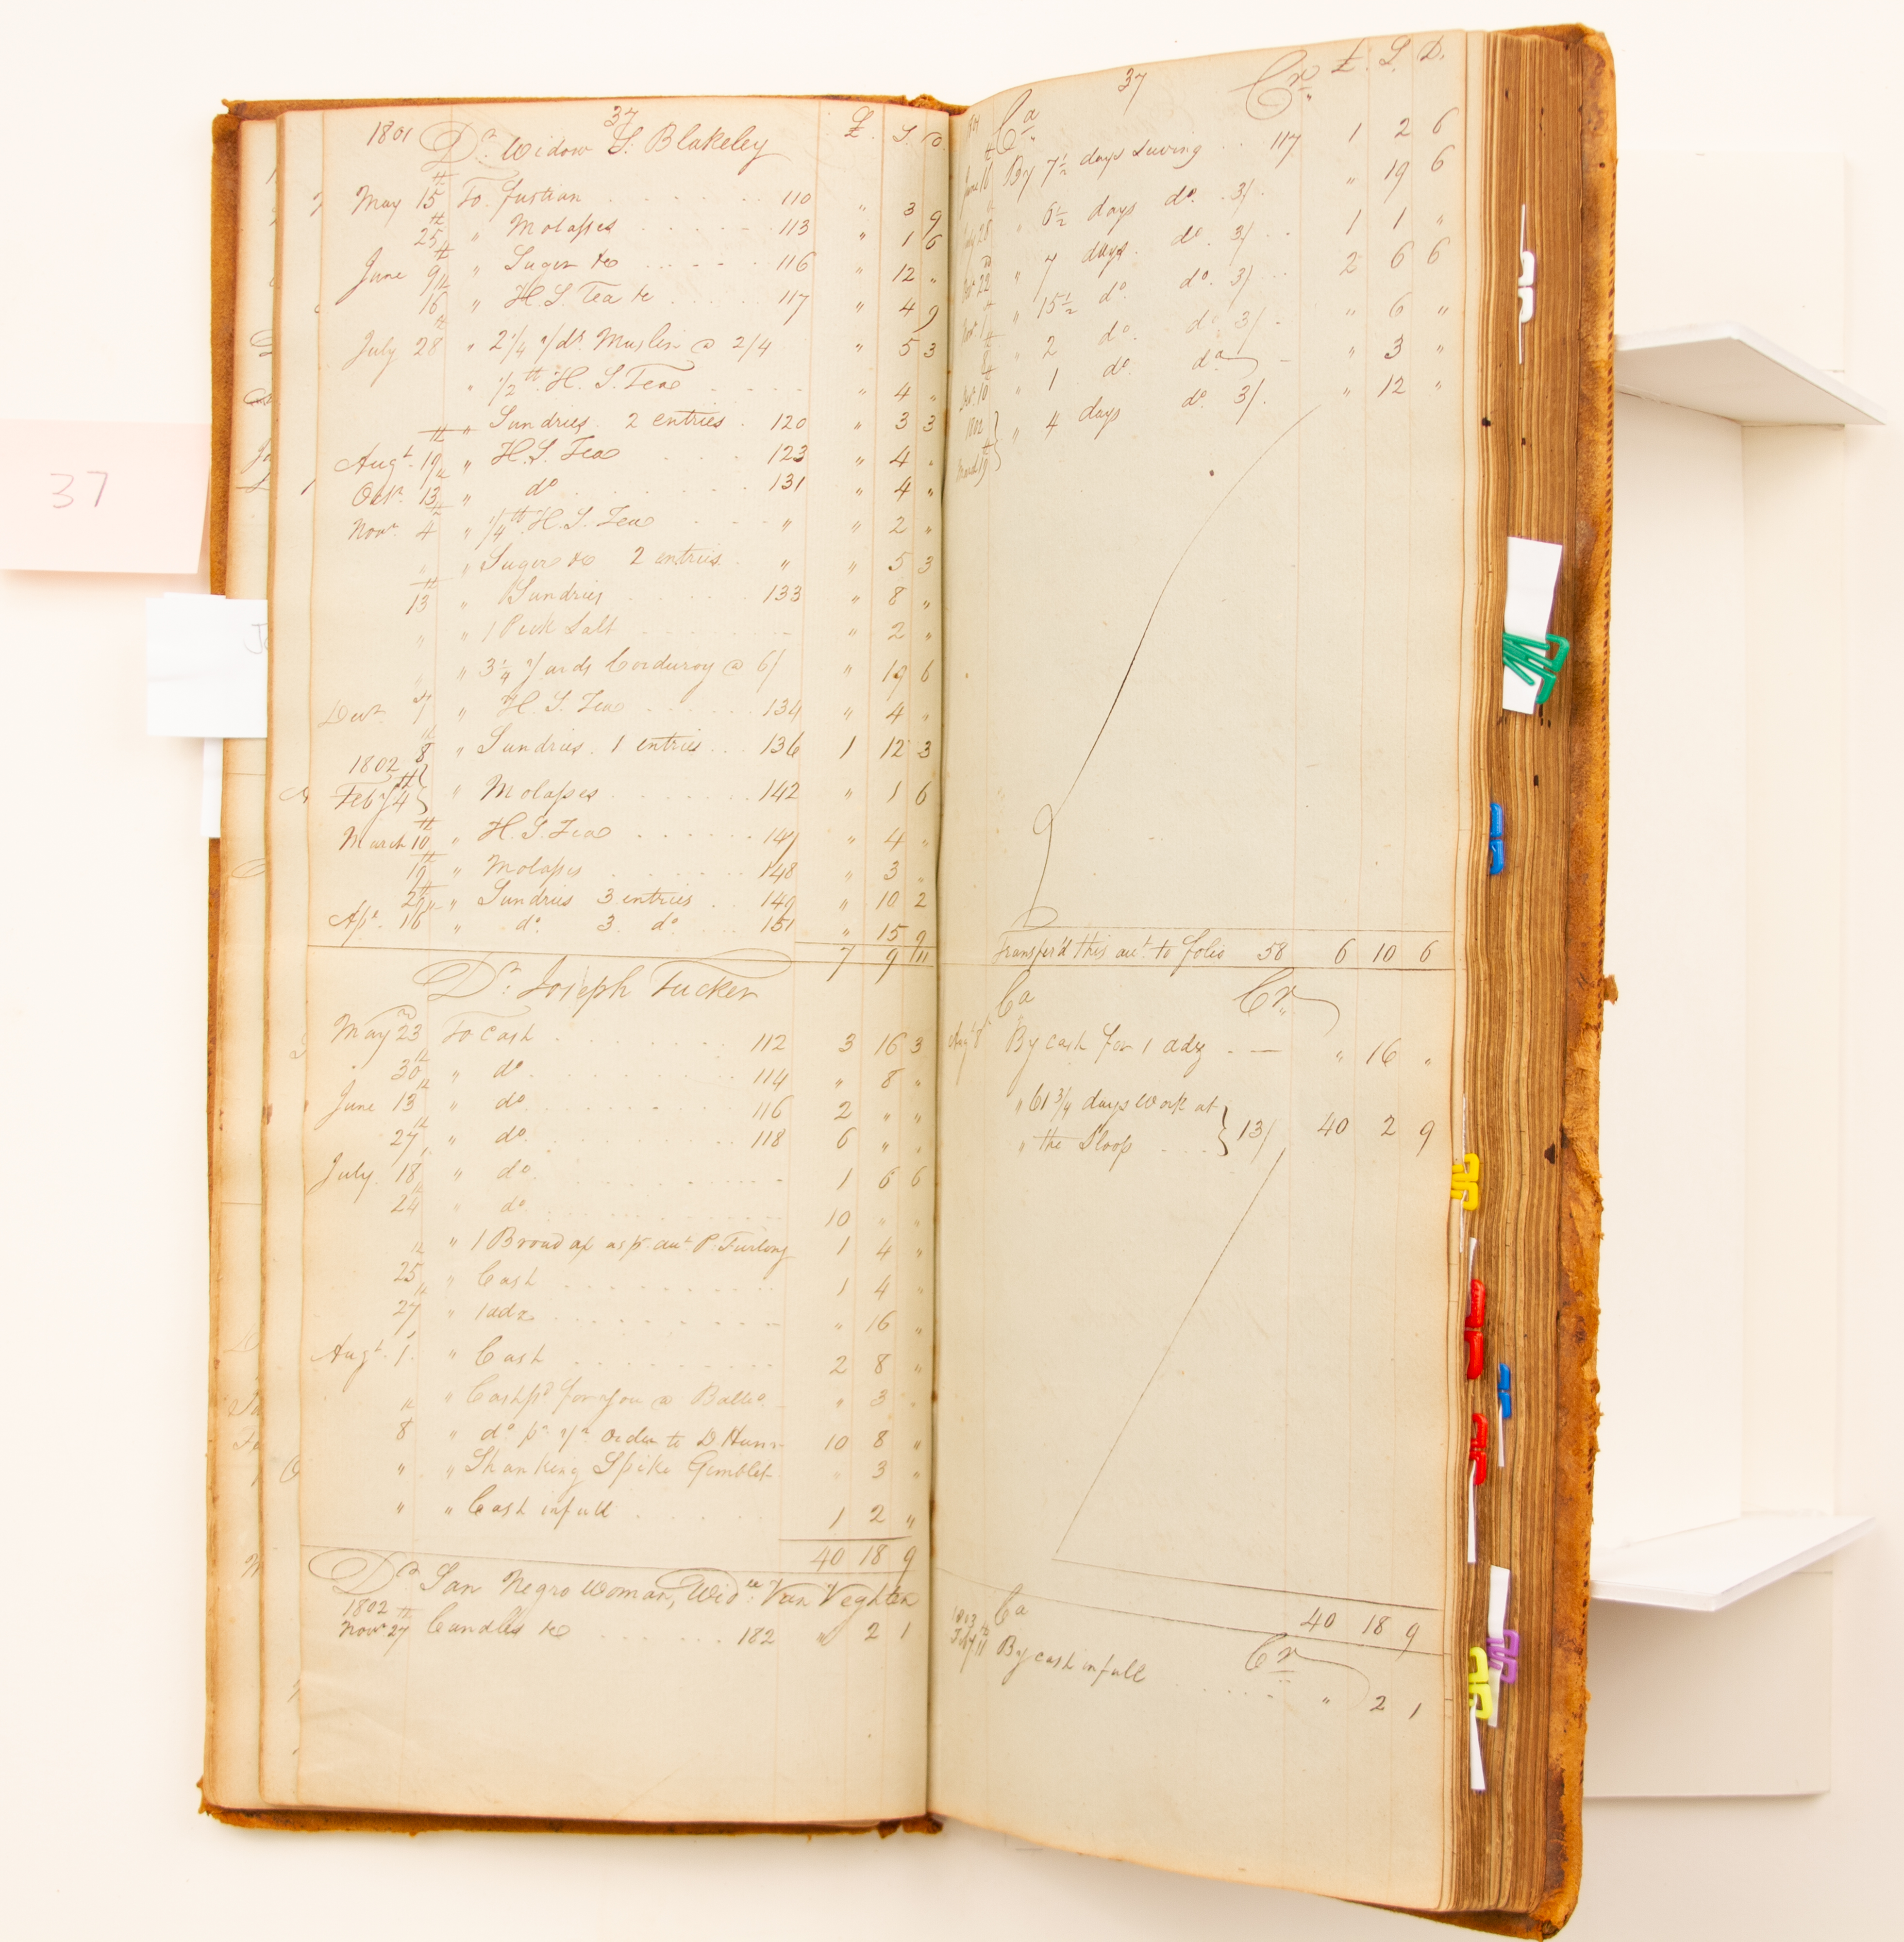 37
1801 Dr. Widow S. Blakeley £. S. D.
May 15th To fustian 110 " 3 9
25th " Molasses 113 " 1 6
June 9th " Suger &c 116 " 12 "
16th " H. S. Tea &c 117 " 4 9
July 28th " 2 1/4 yds. Muslin @ 2/4 " 5 3
" 1/2 lb H. S. Tea " 4 "
" Sundries 2 entries 120 " 3 3
Augt. 19th " H. S. Tea 123 " 4 "
Octr. 13th " do 131 " 4 "
Novr. 4th " 1/4 lb H. S. Tea " " 2 "
" " Suger &c 2 entries " " 5 3
13th " Sundries 133 " 8 "
" " 1 Peck Salt " 2 "
" " 3 1/4 yards Corduroy @ 6/ " 19 6
Decr. 7 " H. S. Tea 134 " 4 "
8th " Sundries 1 entries 136 1 12 3
1802
Feby 4th " Molasses 142 " 1 6
March 10th " H. S. Tea 147 " 4 "
19th " Molasses 148 " 3 "
29th " Sundries 3 entries 149 " 10 2
Apr. 16 " do. 3 do 151 " 15 9
7 9 11
Dr. Joseph Tucker
May 23 To Cash 112 3 16 3
30th " do 114 " 8 "
June 13th " do 116 2 " "
27th " do 118 6 " "
July 18 " do 1 6 6
24th " do 10 " "
" 1 Broad ax as pr. aut P. Furlong 1 4 "
25th " Cash 1 4 "
27th " 1 adz " 16 "
Augt. 1 " Cash 2 8 "
" " Cash pd for you @ " 3 "
8th " do pr. yr order to D. 10 8 "
" " Shanking Spike Gimblet " 3 "
" " Cash in full 1 2 "
40 18 9
Dr. San Negro Woman, Widw. Van Veghten
1802
Novr 27th Candles &c 182 " 2 1
37
Ca Cr. £. S. D.
June 16th By 7 1/2 days Suwing 117 1 2 6
July 28 " 6 1/2 days do. 3/ " 19 6
22d " 7 days do. 3/ 1 1 "
Novr. 1 " 15 1/2 do. do. 3/ 2 6 6
8th " 2 do. do. 3/ " 6 "
Decr. 10th " 1 do. do " 3 "
1802
March 19th " 4 days do. 3/ " 12 "
Transfer'd this aut. to folio 58 6 10 6
Ca Cr.
Augt 8th By cash for 1 adz " 16 "
" 61 3/4 days work at
" the Sloop 13/ 40 2 9
40 18 9
Ca Cr
1803
Feby 11th By cash in full " 2 1
37